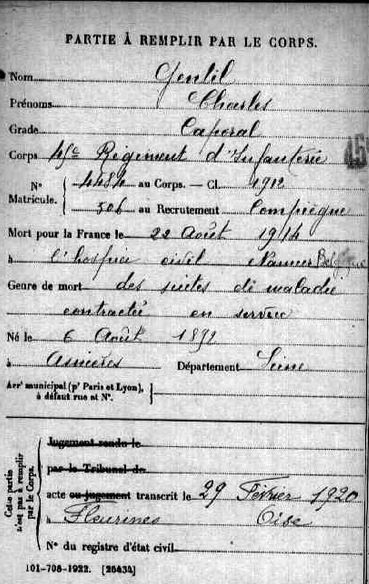 PARTIE À REMPLIR PAR LE CORPS.
Nom Gentil
Prénoms Charles
Grade Caporal
Corps 45e Régiment d'Infanterie
45
N° Matricule. 4484 au Corps. — Cl. 1912
306 au Recrutement Compiègne
Mort pour la France le 22 Août 1914
à l'hospice civil Namur Belgique
Genre de mort des suites de maladie
contractée en service
Né le 6 Août 1892
à Asnières Département Seine
Arr^t municipal (p^r Paris et Lyon),
à défaut rue et N°.
Cette partie n'est pas à remplir par le Corps.
Jugement rendu le
par le Tribunal de
acte ou jugement transcrit le 29 Février 1920
à Fleurines Oise
N° du registre d'état civil
101-708-1922. [26434]